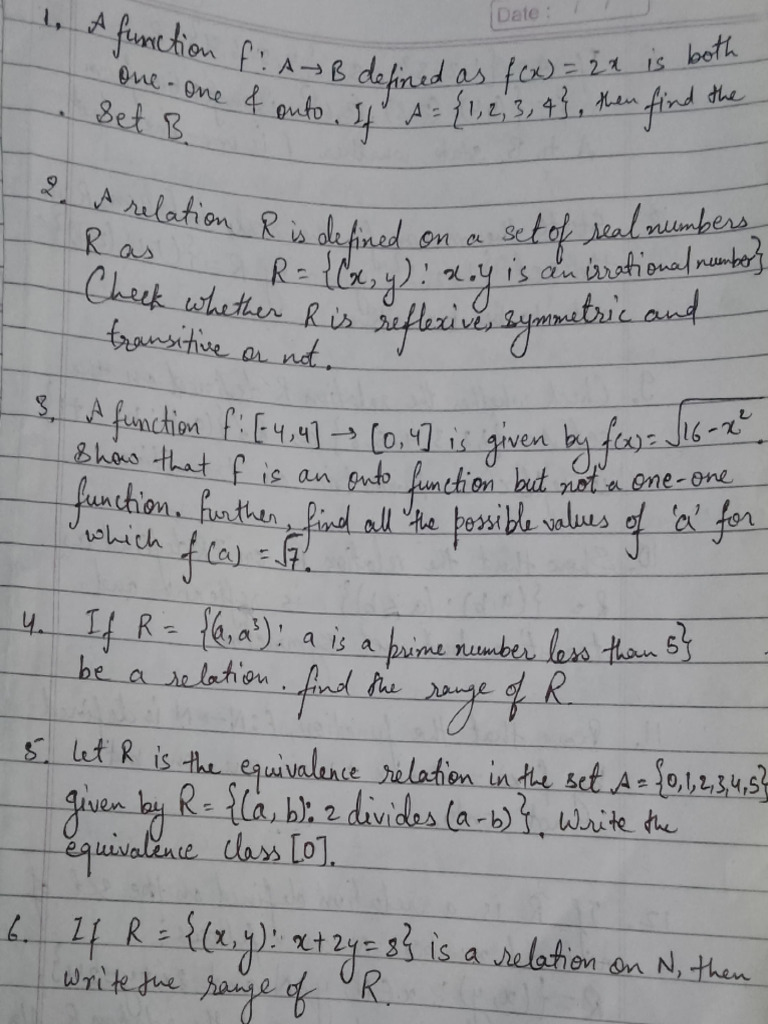 Date:
1. A function f: A → B defined as f(x) = 2x is both
one-one & onto. If A = {1, 2, 3, 4}, then find the
Set B.
2. A relation R is defined on a set of real numbers
R as R = {(x, y): x.y is an irrational number}
Check whether R is reflexive, symmetric and
transitive or not.
3. A function f: [-4, 4] → [0, 4] is given by f(x) = √16-x².
Show that f is an onto function but not a one-one
function. further, find all the possible values of 'a' for
which f(a) = √7.
4. If R = {(a, a³): a is a prime number less than 5}
be a relation. find the range of R.
5. Let R is the equivalence relation in the set A = {0,1,2,3,4,5}
given by R = {(a, b): 2 divides (a-b)}. Write the
equivalence class [0].
6. If R = {(x, y): x+2y=8} is a relation on N, then
Write the range of R.